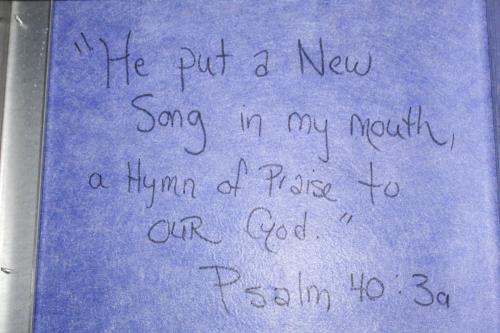 "He put a New
Song in my mouth,
a Hymn of Praise to
OUR God."
Psalm 40:3a